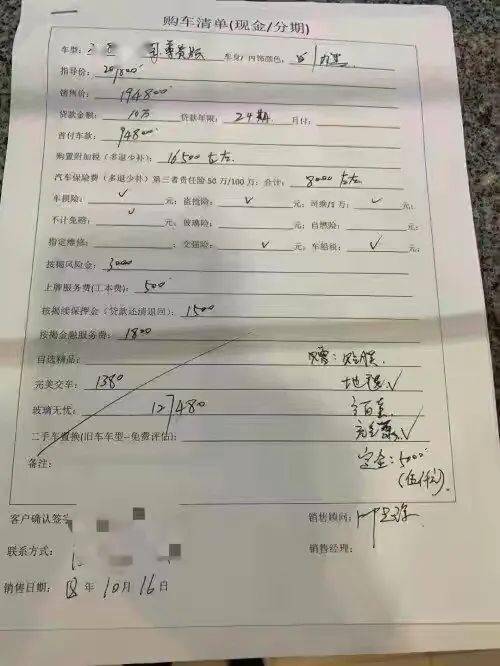 购车清单(现金/分期)
车型: 尊贵版 车身/内饰颜色: 白/
指导价: 201800
销售价: 194800
贷款金额: 10万 贷款年限: 24期 月付:
首付车款: 94800
购置附加税(多退少补): 16500左右
汽车保险费(多退少补)第三者责任险50万/100万: 合计: 8000左右
车损险: ✓ 元; 盗抢险: ✓ 元; 司乘/1万: ✓ 元;
不计免赔: ✓ 元; 玻璃险: 元; 自燃险: 元;
指定维修: 元; 交强险: ✓ 元; 车船税: ✓ 元;
按揭风险金: 3000
上牌服务费(工本费): 500
按揭续保押金(贷款还清退回): 1500
按揭金融服务费: 1800
自选精品:
完美交车: 1380 地 ✓
玻璃无忧: 127480
二手车置换(旧车车型--免费评估): ✓
备注: 定金: 5000
(伍仟)
客户确认签字 销售顾问:
联系方式: 销售经理:
销售日期: 18年10月16日